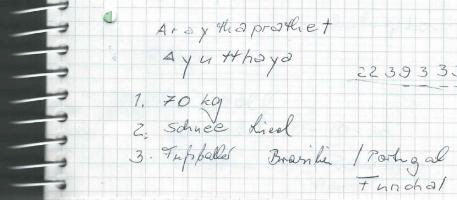 Araythaprathet
Ayutthaya
22 39 3 3
1. 70 kg
2. Schnee Lied
3. Fußballer Brasilien / Portugal
Funchal